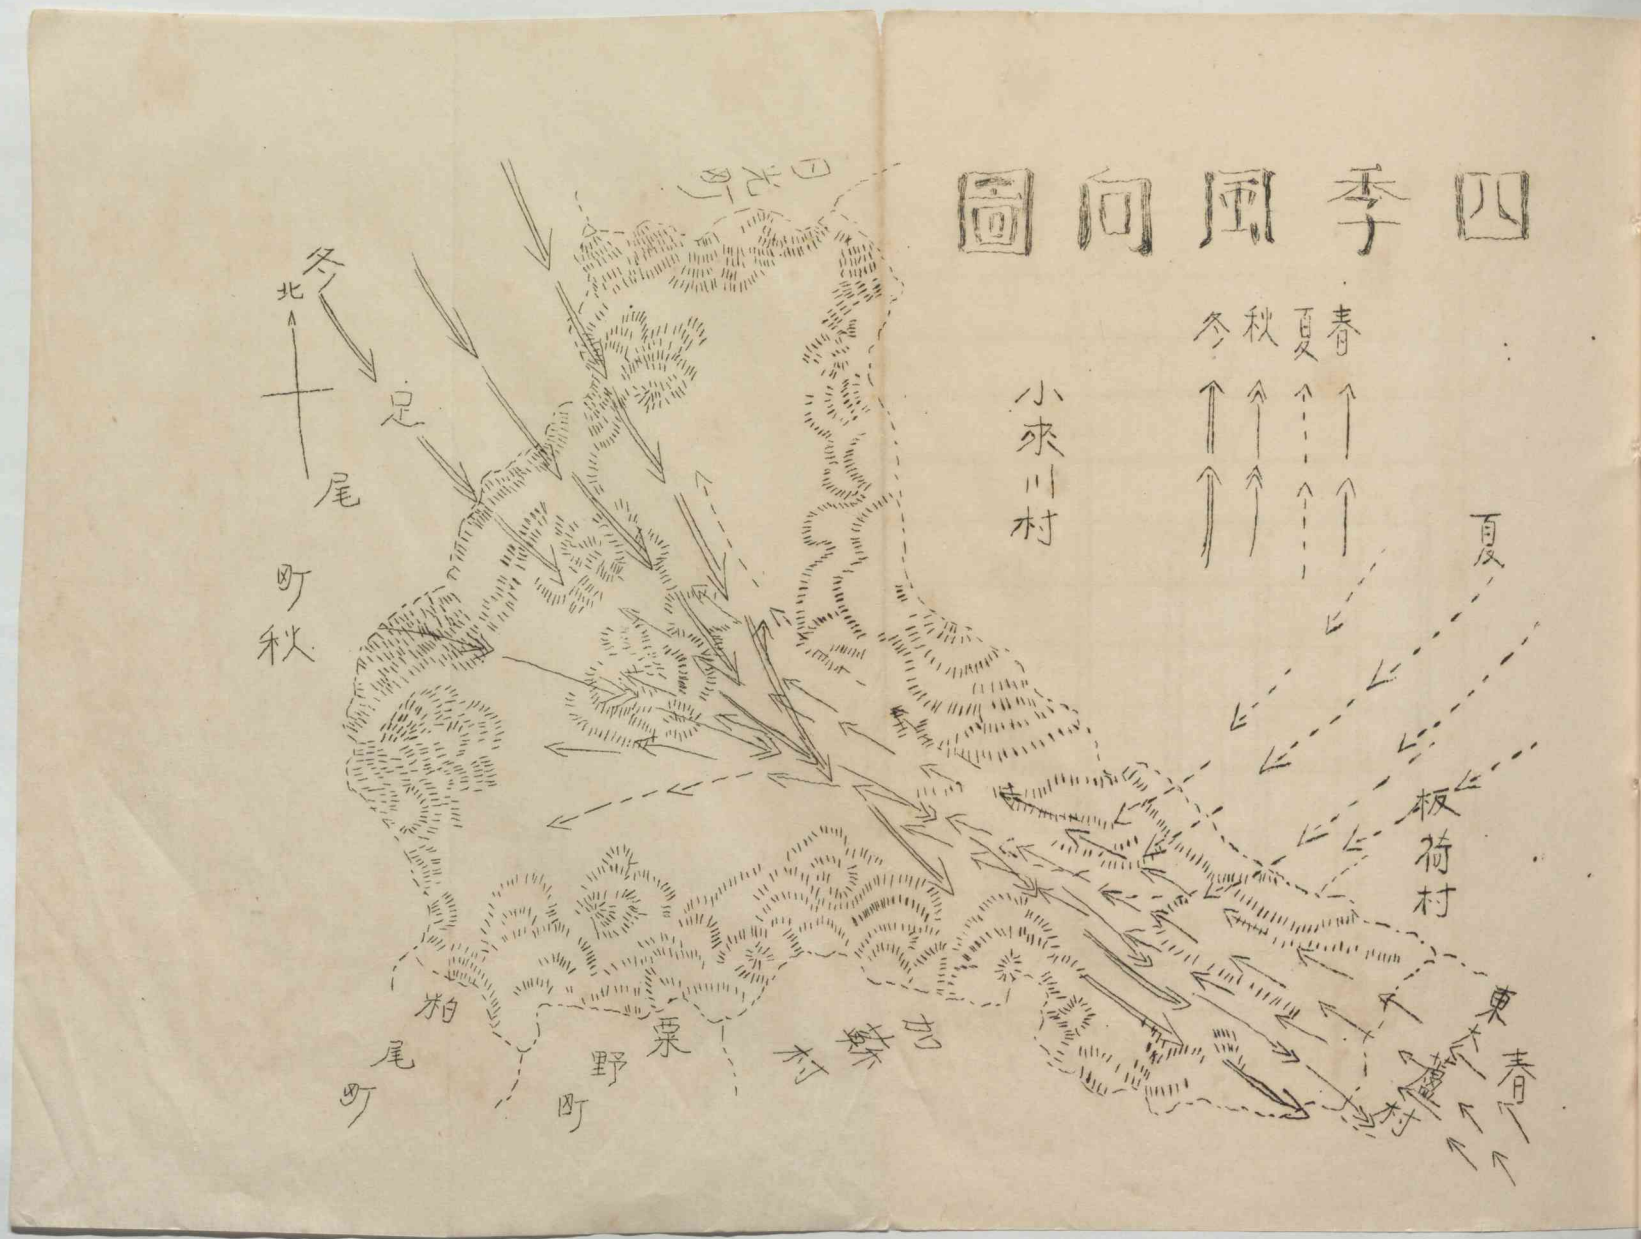 四季風向圖
春
夏
秋
冬
小來川村
夏
板荷村
東大蘆村
春
日光町
冬
北
足尾町
秋
粕尾町
粟野町
加蘇村